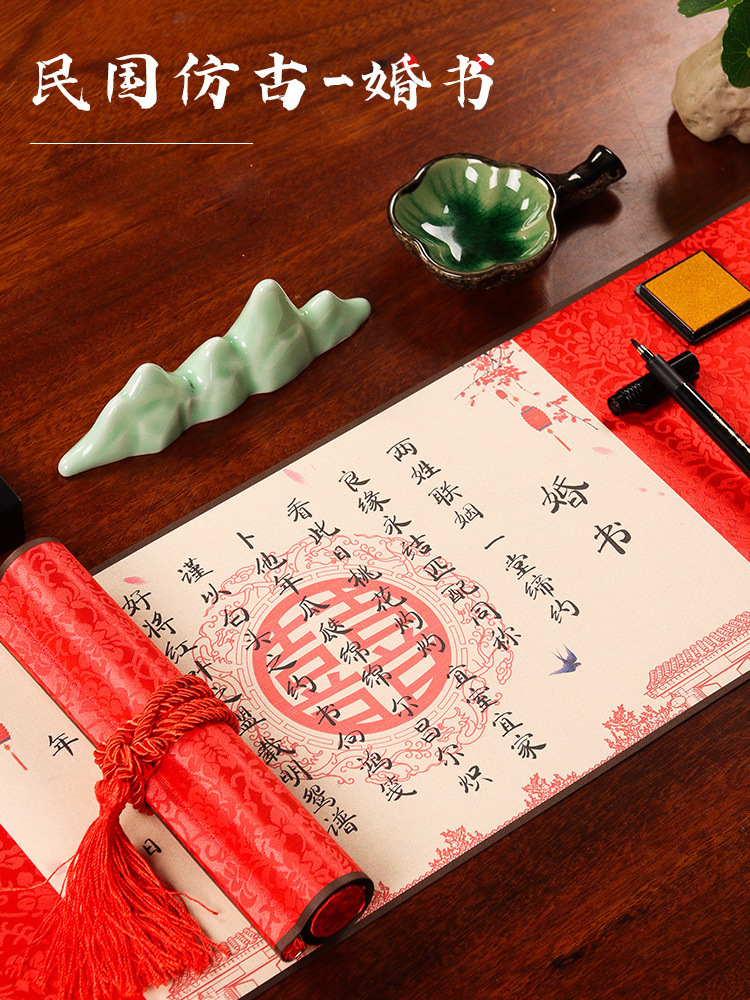 民国仿古-婚书
婚书
两姓联姻 一堂缔约
良缘永结 匹配同称
看此日桃花灼灼 宜室宜家
卜他年瓜瓞绵绵 尔昌尔炽
谨以白头之约 书向鸿笺
好将红叶之盟 载明鸳谱
年
日